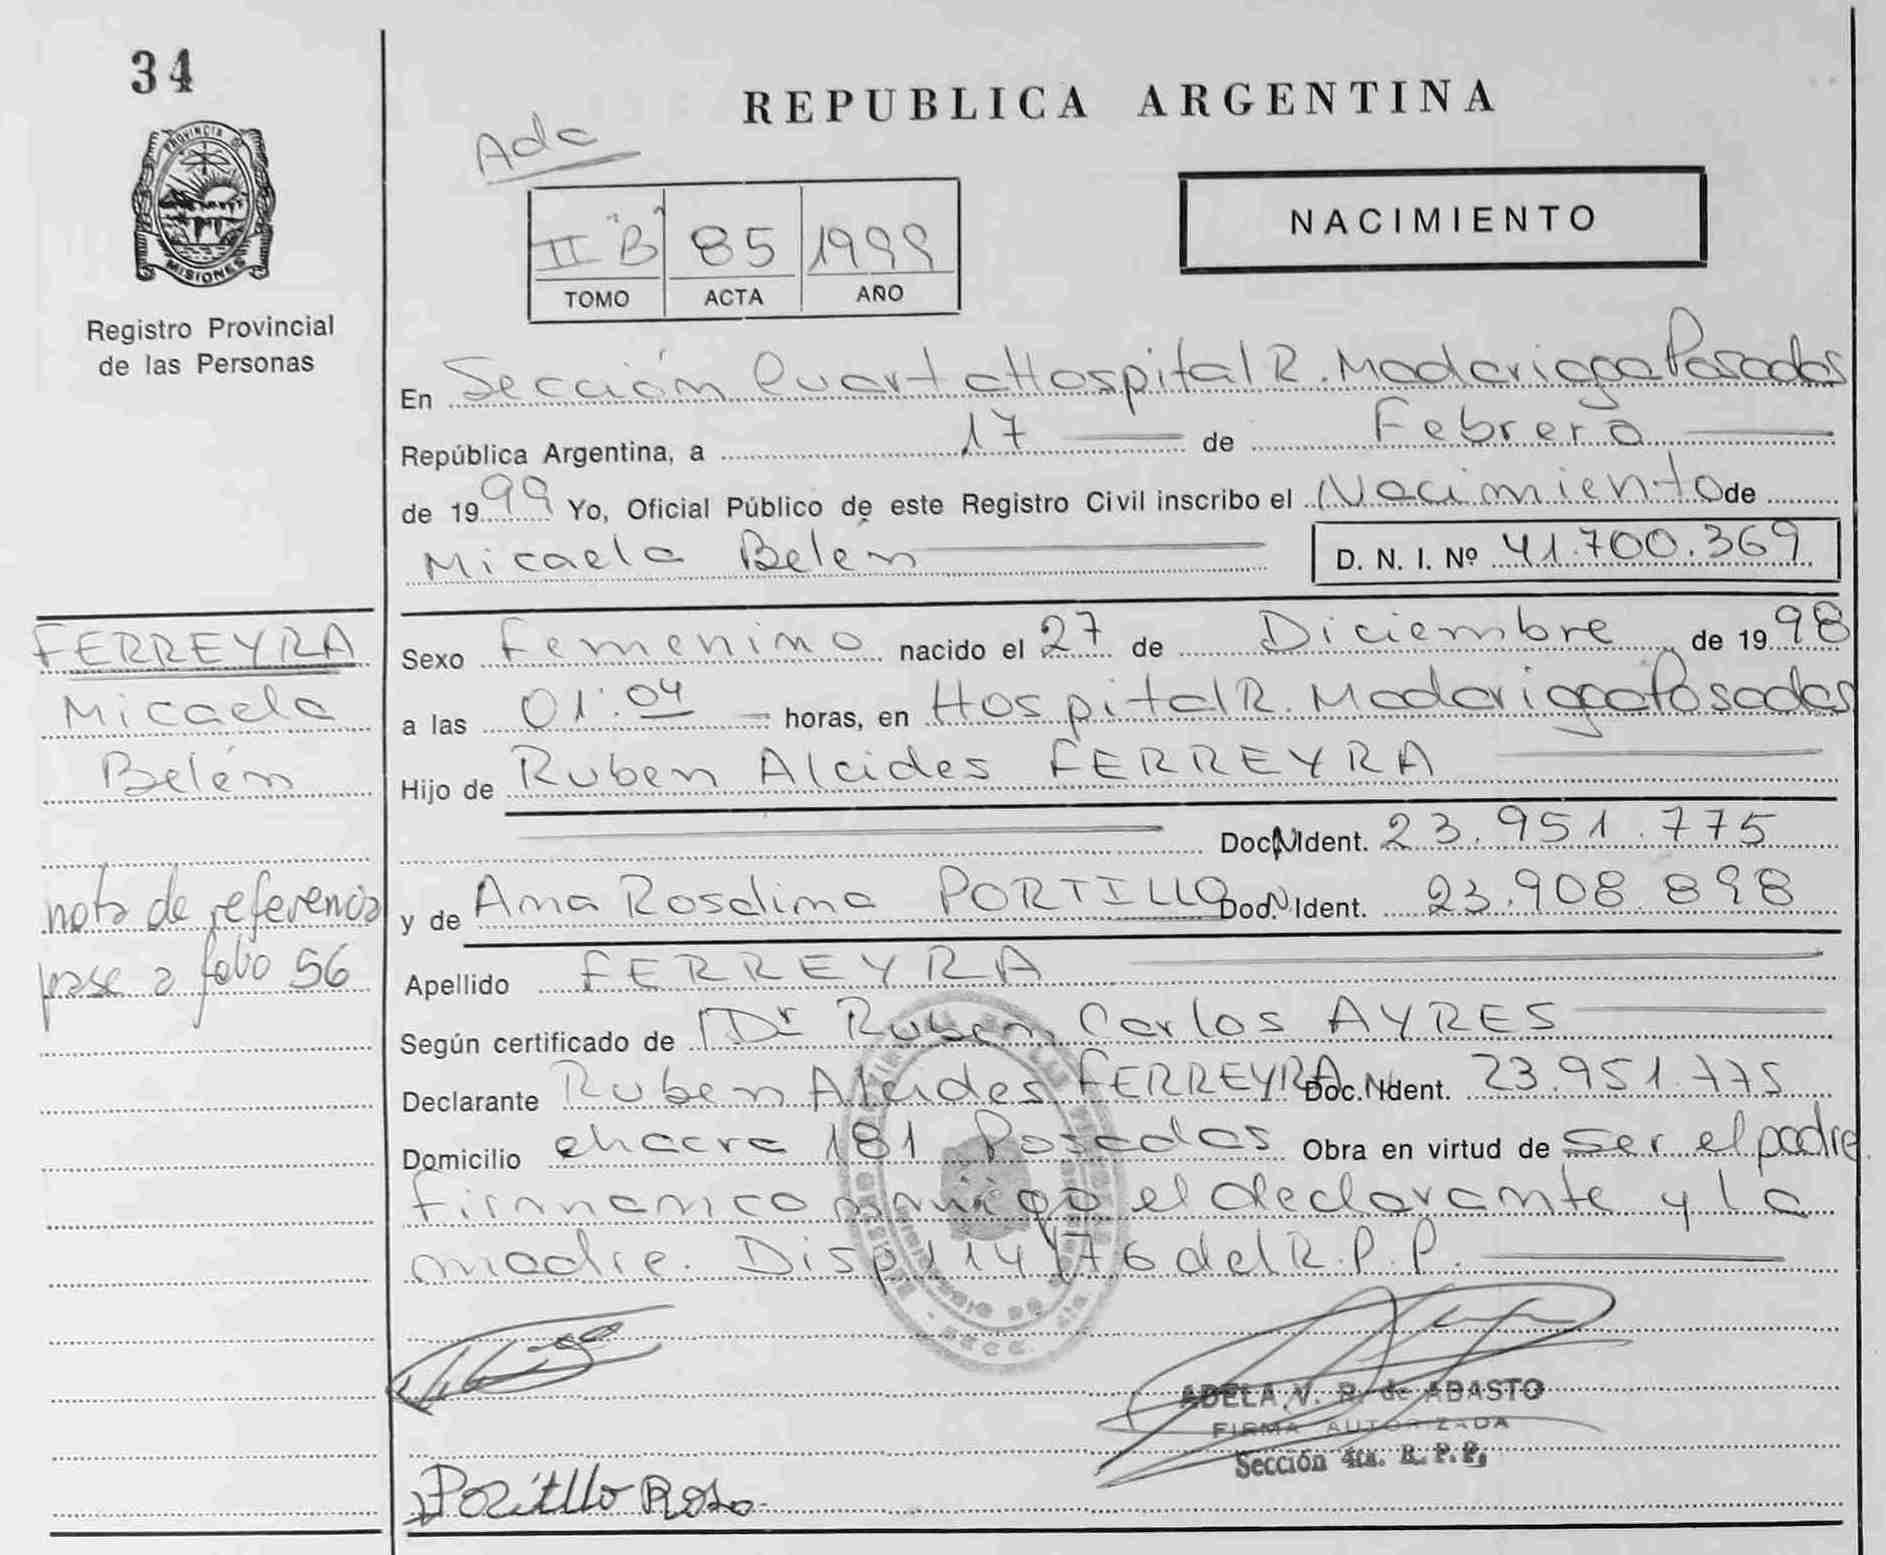 34
PROVINCIA DE
MISIONES
Registro Provincial
de las Personas
REPUBLICA ARGENTINA
Adc
II "B" 85 1999
TOMO ACTA AÑO
NACIMIENTO
En Sección Cuarta Hospital R. Madariaga Posadas
República Argentina, a 17 de Febrero
de 1999 Yo, Oficial Público de este Registro Civil inscribo el Nacimiento de
Micaela Belén D. N. I. Nº 41.700.369
FERREYRA
Micaela
Belén
nota de referencia
pase a folio 56
Sexo Femenino nacido el 27 de Diciembre de 1998
a las 01:04 horas, en Hospital R. Madariaga Posadas
Hijo de Ruben Alcides FERREYRA
Doc. N Ident. 23.951.775
y de Ana Rosalina PORTILLO Doc. N Ident. 23.908.898
Apellido FERREYRA
Según certificado de Dr Ruben Carlos AYRES
Declarante Ruben Alcides FERREYRA Doc. N Ident. 23.951.775
Domicilio chacra 181 Posadas Obra en virtud de ser el padre
firman conmigo el declarante y la
madre. Disp 114/76 del R.P.P.
ADELA V. R. de ABASTO
FIRMA AUTORIZADA
Sección 4ta. R. P. P.
Portillo Rosa